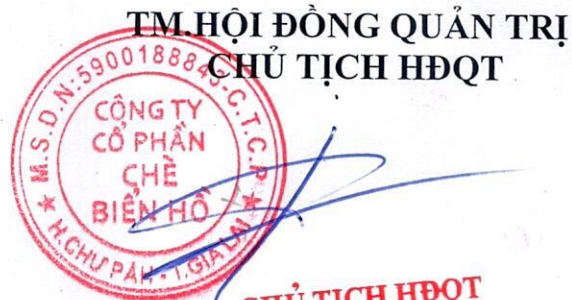 TM.HỘI ĐỒNG QUẢN TRỊ
CHỦ TỊCH HĐQT
M.S.D.N:5900188845-C.T.C.P
CÔNG TY
CỔ PHẦN
CHÈ
BIỂN HỒ
H.CHƯ PĂH - T.GIA LAI
CHỦ TỊCH HĐQT